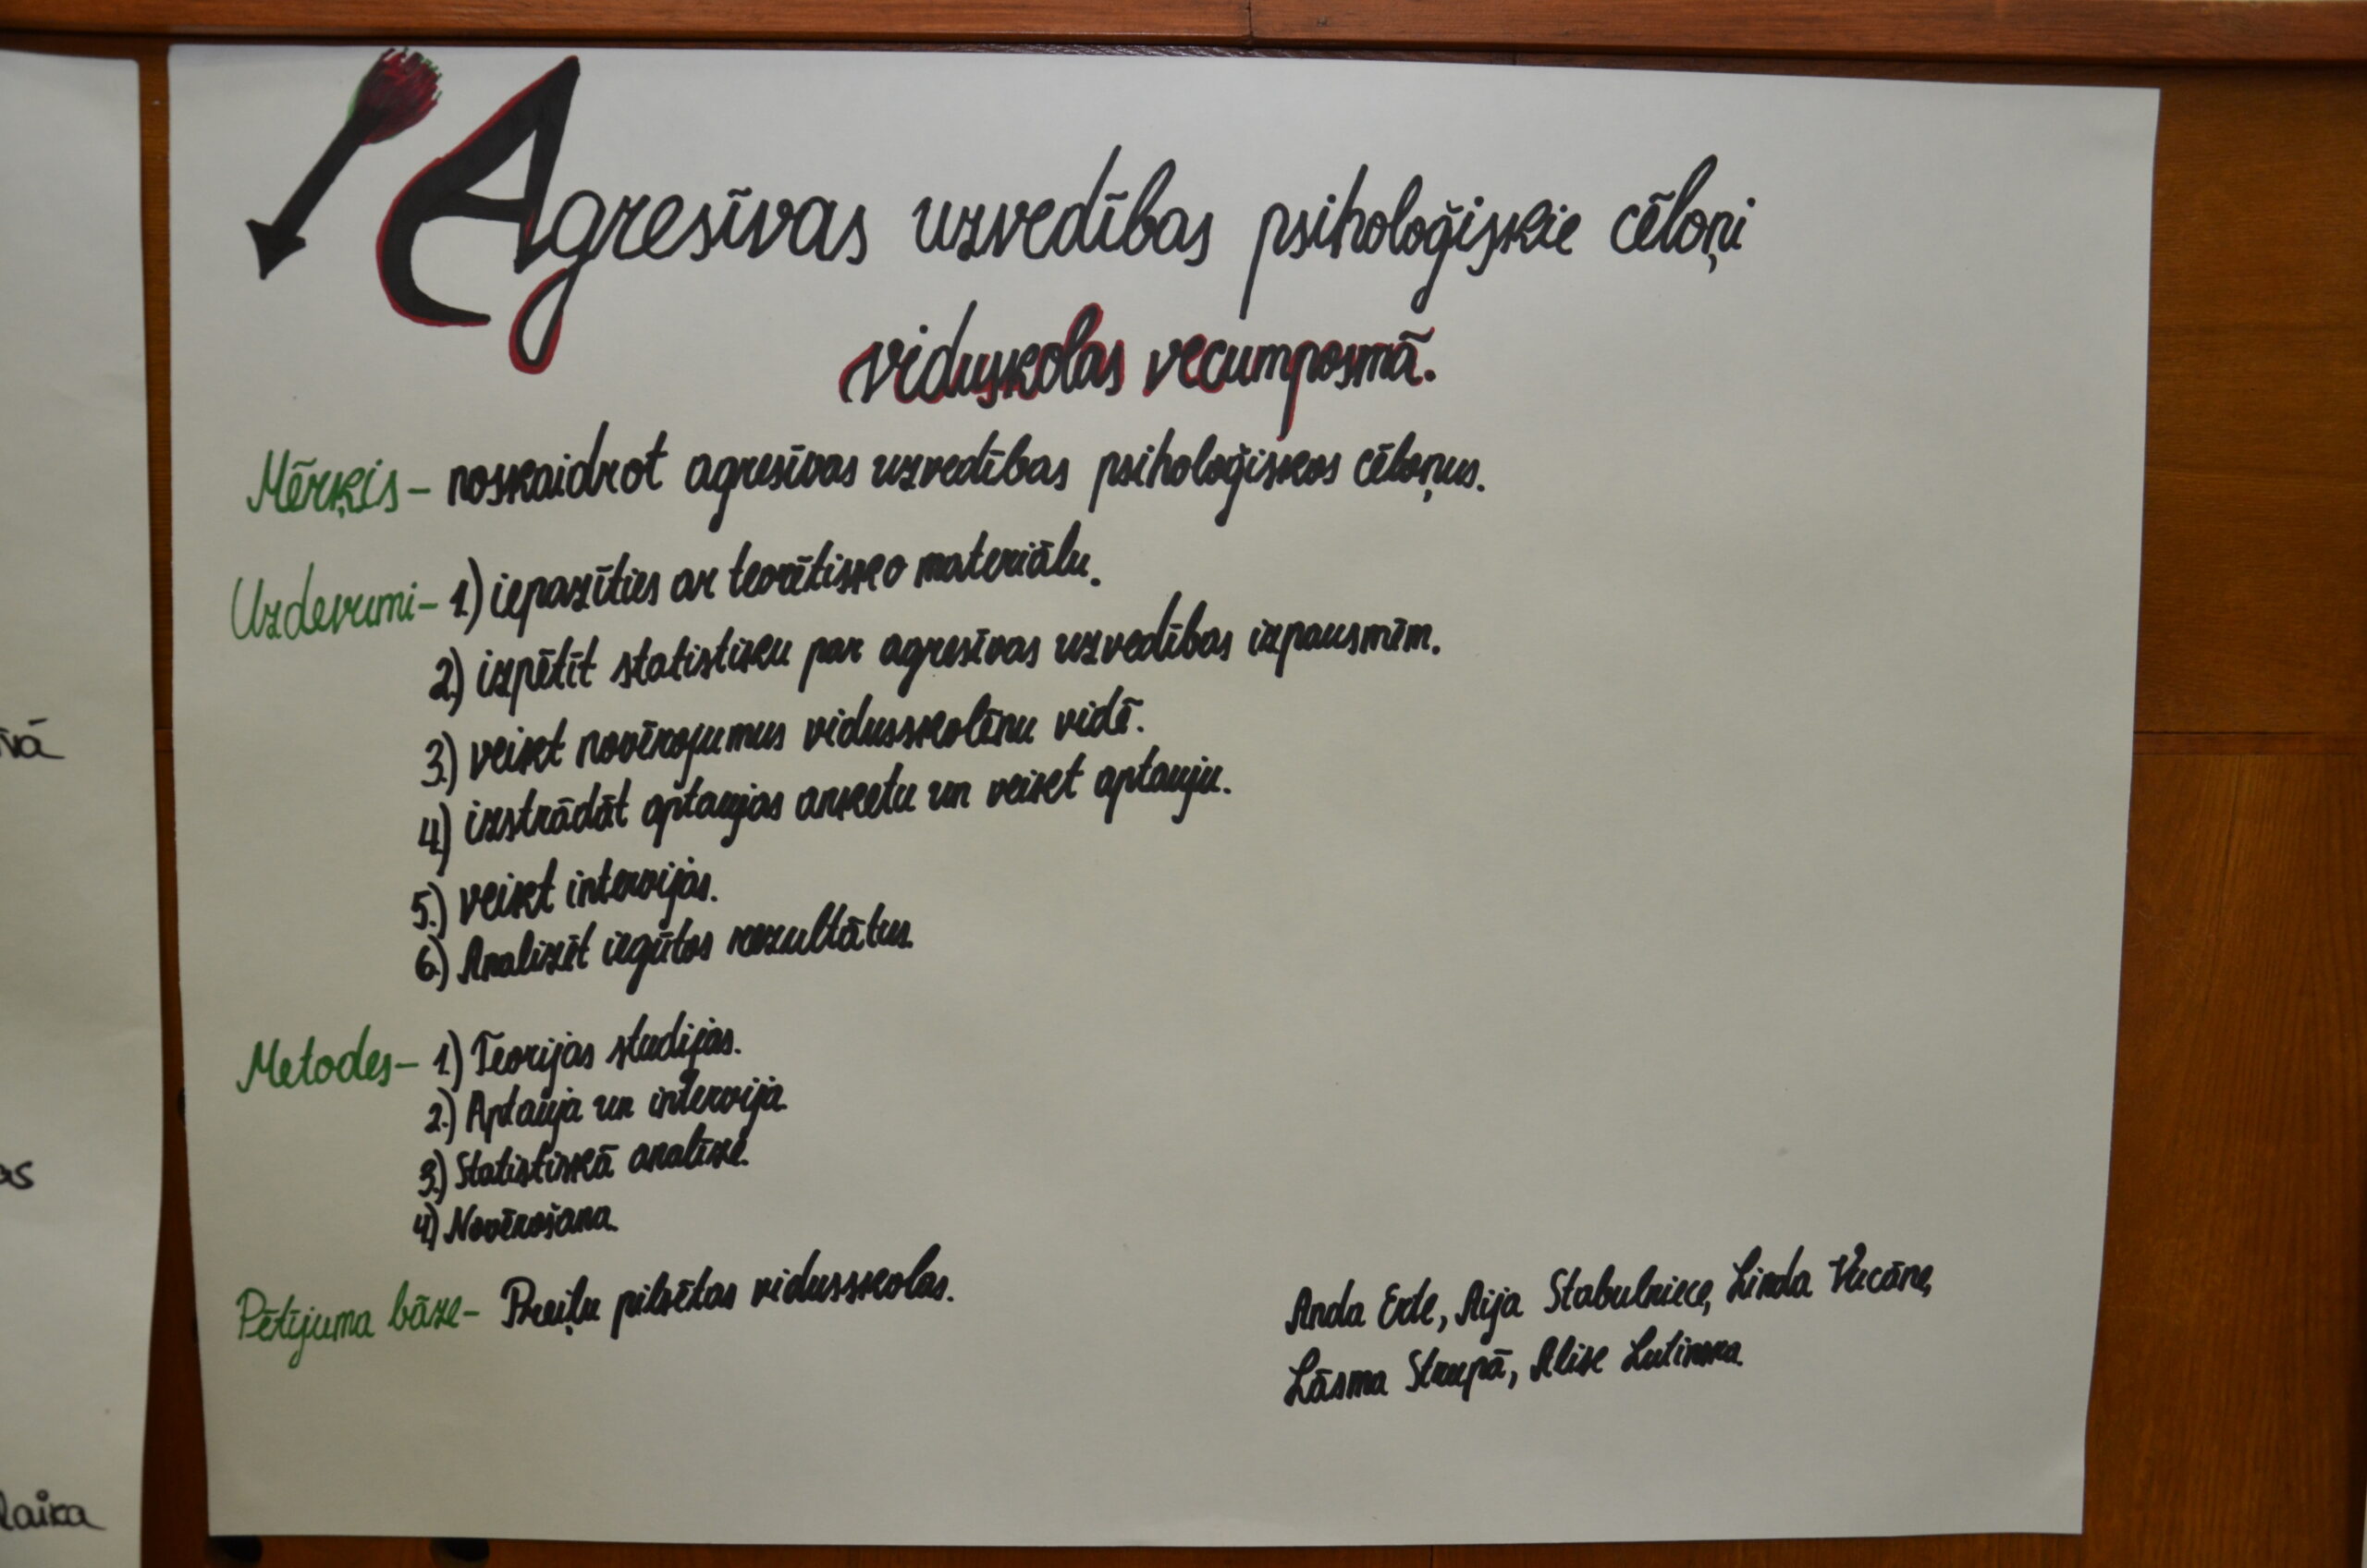 Agresīvas uzvedības psiholoģiskie cēloņi
viduskolas vecumposmā.
Mērķis – noskaidrot agresīvas uzvedības psiholoģiskos cēloņus.
Uzdevumi – 1.) iepazīties ar teorētisko materiālu.
2.) izpētīt statistiku par agresīvas uzvedības izpausmēm.
3.) veikt novērojumus vidusskolēnu vidē.
4.) izstrādāt aptaujas anketu un veikt aptauju.
5.) veikt intervijas.
6.) Analizēt iegūtos rezultātus.
Metodes – 1.) Teorijas studijas.
2.) Aptauja un intervija.
3.) Statistiskā analīze.
4.) Novērošana.
Pētījuma bāze – Preiļu pilsētas vidusskolas.
Anda Erte, Aija Stabulniece, Linda Vucāne,
Lāsma Strupā, Alise Lutinska
vā
as
laika